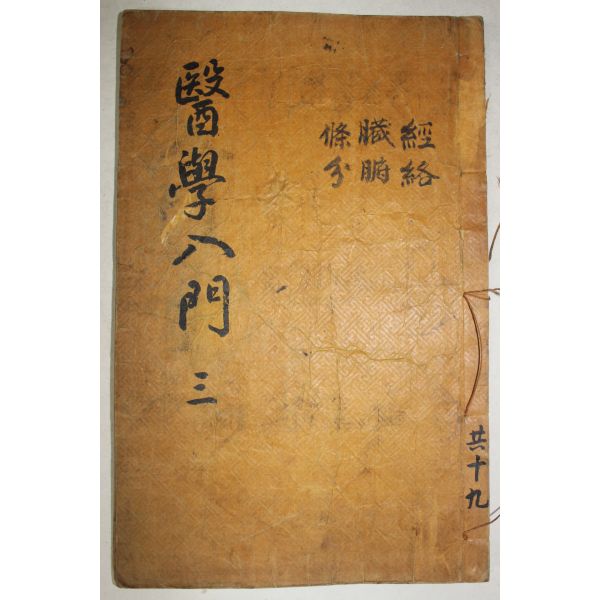 醫學入門 三
經絡
臟腑
條分
共十九